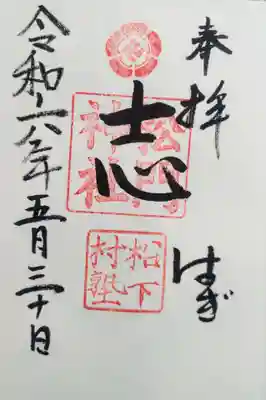 奉拝
はぎ
志
松陰
神社
松下
村塾
令和六年五月三十日